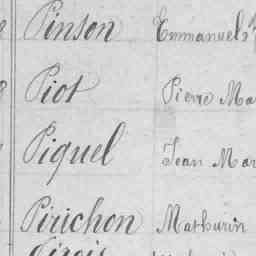 Pinson Emmanuel
Piot Pierre Mar
Piquel Jean Mar
Pirichon Mathurin